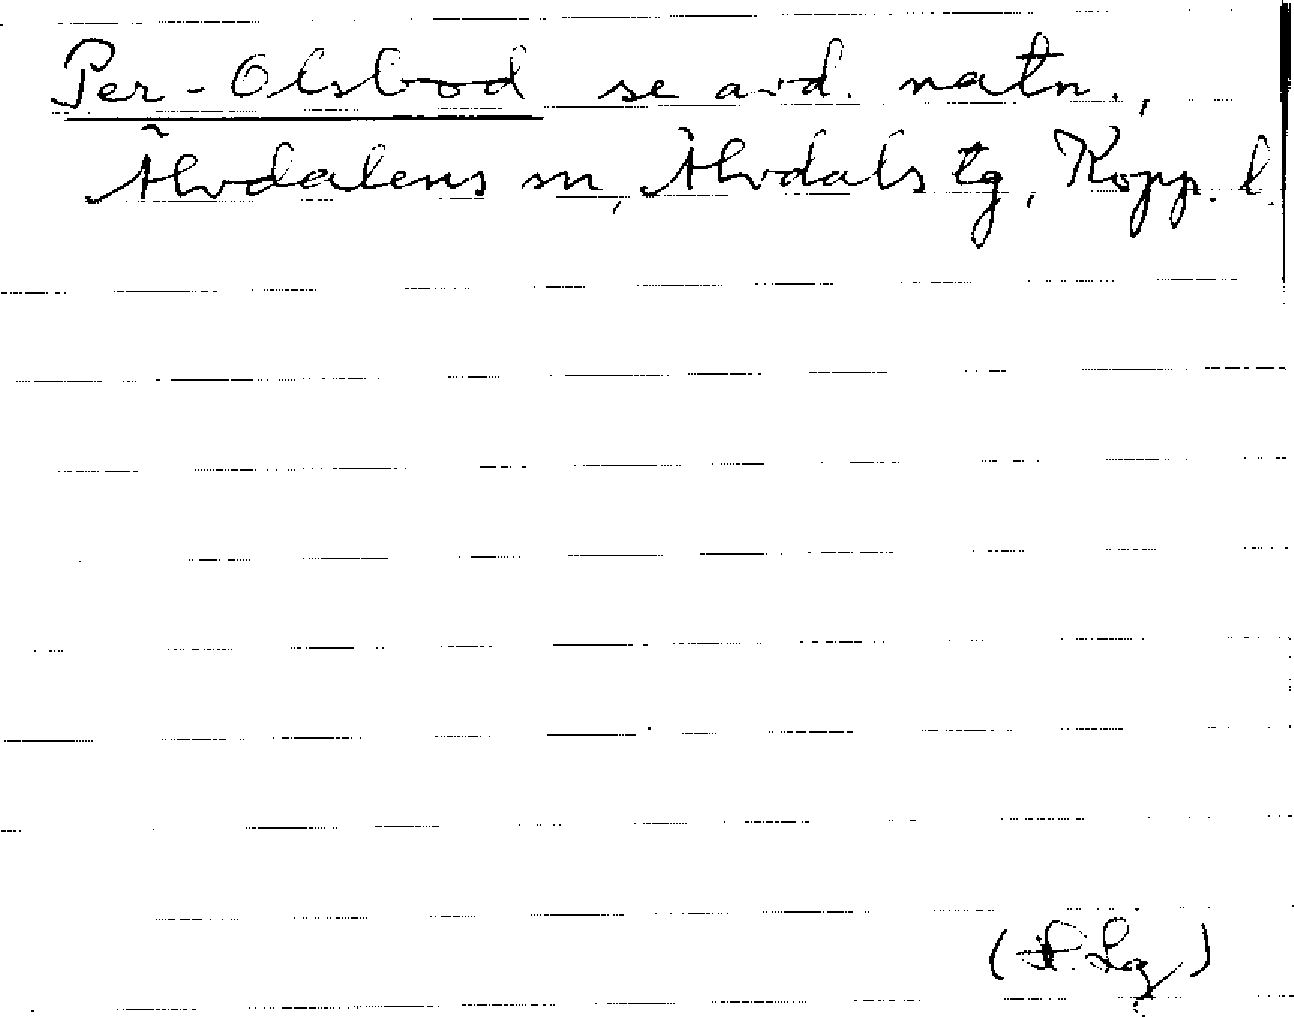 Per-Olsbod se avd. natn.,
Älvdalens sn, Älvdals tg, Kopp. l.